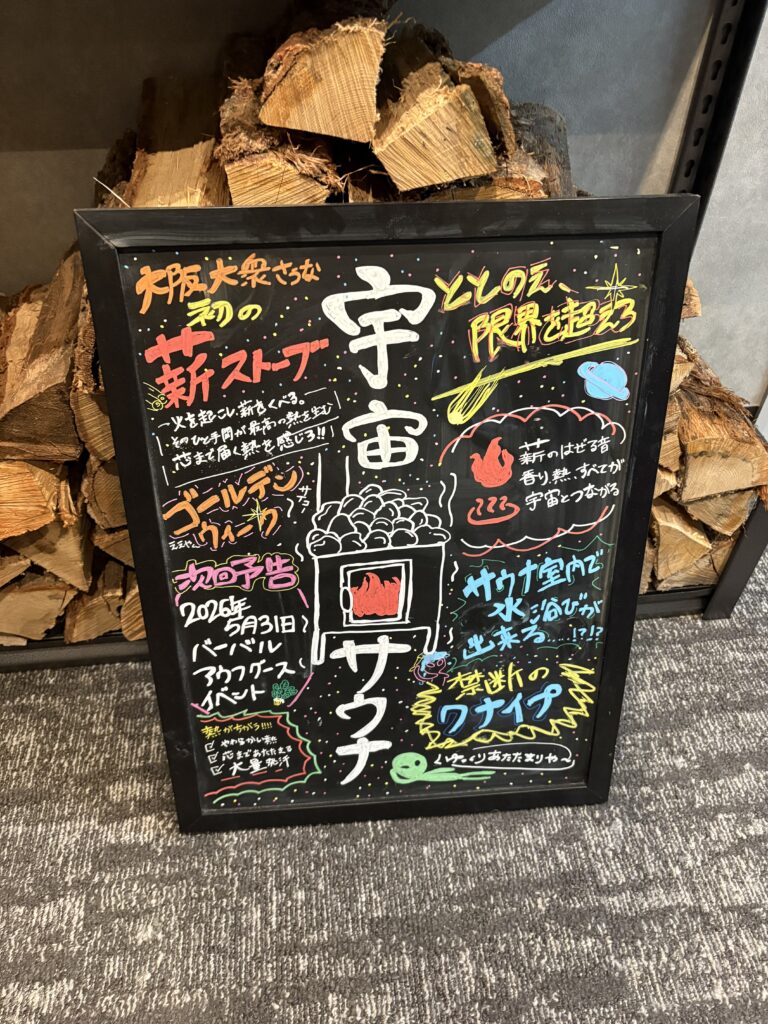 大阪大衆さうな
初の
薪ストーブ
火を起こし、薪をくべる。
そのひと手間が最高の熱を生む
芯まで届く熱を感じろ!!
ゴールデン
ウィーク
次回予告
2026年
5月31日
バーバル
アウフグース
イベント
熱がちがう!!!!
やわらかい熱
芯まであたたまる
大量発汗
宇宙サウナ
ととのえ、
限界を超えろ
薪のはぜる音
香り、熱、すべてが
宇宙とつながる
サウナ室内で
水浴びが
出来る……!?!?
禁断の
ワナイプ
ゆっくりあたたまりや~